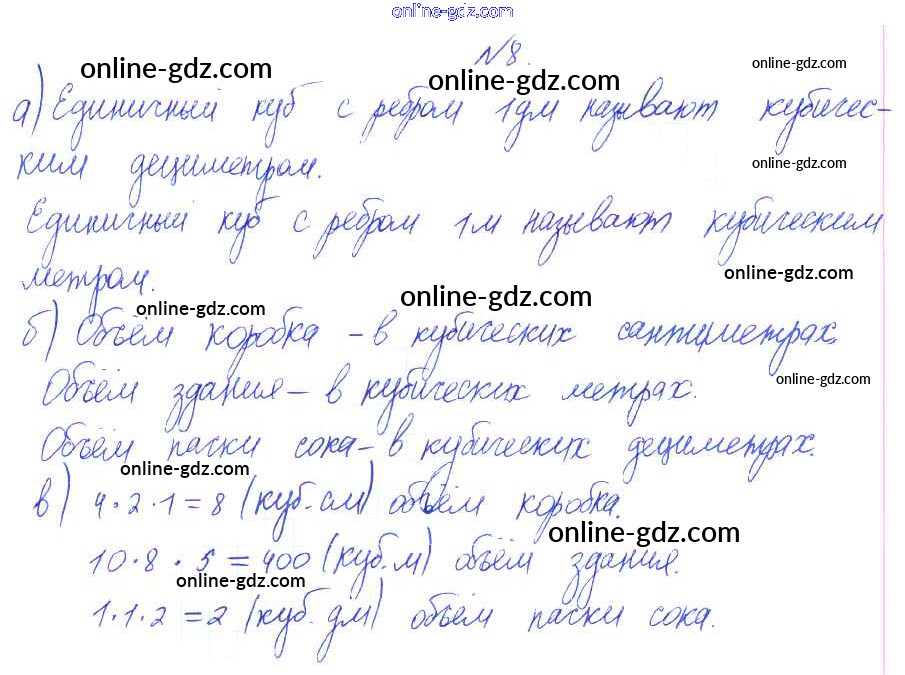 online-gdz.com
№8.
online-gdz.com online-gdz.com online-gdz.com
а) Единичный куб с ребром 1дм называют кубичес-
ким дециметром.
online-gdz.com
Единичный куб с ребром 1м называют кубическим
метром.
online-gdz.com
online-gdz.com online-gdz.com
б) Объём коробка – в кубических сантиметрах.
online-gdz.com
Объём здания – в кубических метрах.
Объём пачки сока – в кубических дециметрах.
online-gdz.com
в) 4·2·1=8 (куб.см) объём коробка.
online-gdz.com
10·8·5=400 (куб.м) объём здания.
online-gdz.com
1·1·2=2 (куб.дм) объём пачки сока.